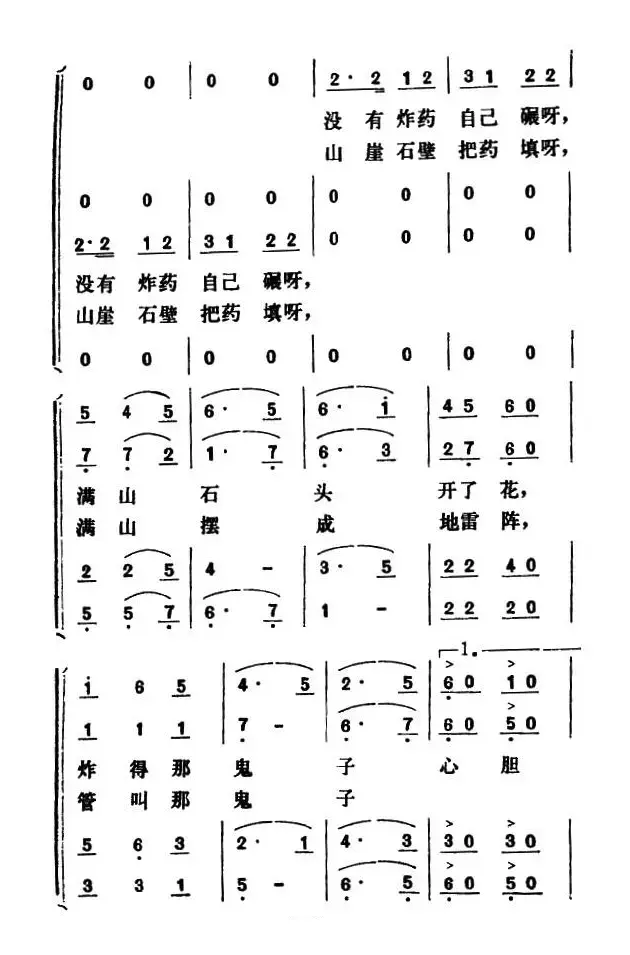 0 0 | 0 0 | 2· 2 1 2 | 3 1 2 2
没有炸药自己碾呀，
山崖石壁把药填呀，
0 0 | 0 0 | 0 0 | 0 0
2· 2 1 2 | 3 1 2 2 | 0 0 | 0 0
没有炸药自己碾呀，
山崖石壁把药填呀，
0 0 | 0 0 | 0 0 | 0 0
5 4 5 | 6· 5 | 6· i | 4 5 6 0
7 7 2 | 1· 7 | 6· 3 | 2 7 6 0
满山石头开了花，
满山摆成地雷阵，
2 2 5 | 4 - | 3· 5 | 2 2 4 0
5 5 7 | 6· 7 | 1 - | 2 2 2 0
1.
i 6 5 | 4· 5 | 2· 5 | 6 0 1 0
1 1 1 | 7 - | 6· 7 | 6 0 5 0
炸得那鬼子心胆
管叫那鬼子
5 6 3 | 2· 1 | 4· 3 | 3 0 3 0
3 3 1 | 5 - | 6· 5 | 6 0 5 0